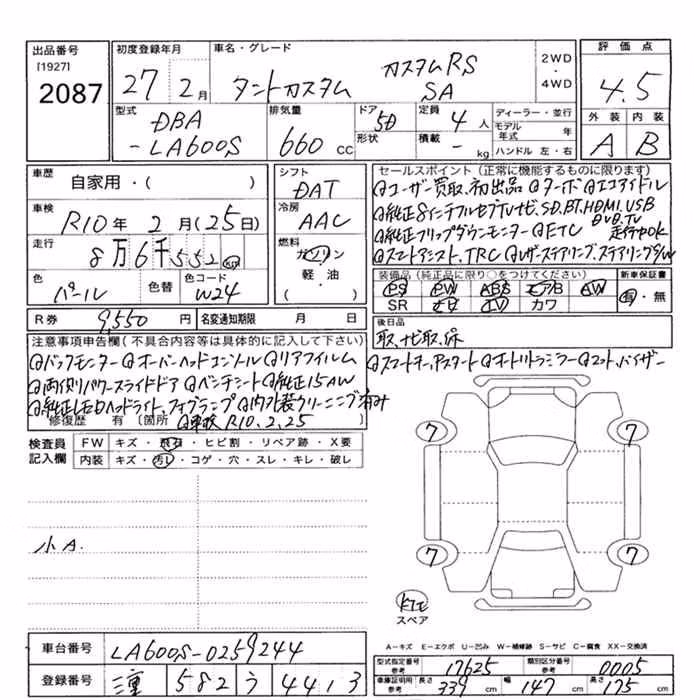 出品番号 初度登録年月 車名・グレード 評価点
[1927] 2087 27年 2月 タントカスタム カスタムRS SA 2WD・4WD 4.5
型式 DBA-LA600S 排気量 660 CC ドア 5D 形状 定員 4人 積載 - kg ディーラー・並行 モデル年式 年 ハンドル 左・右 外装 A 内装 B
車歴 自家用・( ) シフト DAT
車検 R10年 2月(25日) 冷房 AAC
走行 8万6千552 km 燃料 ガソリン 軽・油 ( )
色 パール 色替 色コード W24
R券 9,550円 名変通知期限 月 日
セールスポイント(正常に機能するものに限ります)
ユーザー買取、初出品 ターボ エコアイドル
純正8インチフルセグTVナビ、SD.BT.HDMI.USB
DVD.TV 走行中OK
純正フリップダウンモニター ETC
スマートアシスト、TRC レザーステアリング、ステアリングSW
装備品(純正品に限り○をつけてください) 新車保証書
PS PW ABS エアB AW 有・無
SR TV カワ
後日品
取、ナビ取、保
スマートキー、Pスタート オートリトラミラー
注意事項申告欄(不具合内容等は具体的に記入して下さい)
バックモニター オーバーヘッドコンソール リアフイルム
両側パワースライドドア ベンチシート 純正15AW
純正LEDヘッドライト、フォグランプ 内外装クリーニング済み
修復歴 有 (箇所 車検 R10.2.25)
検査員記入欄 FW キズ・飛石・ヒビ割・リペア跡・X要
内装 キズ・汚レ・コゲ・穴・スレ・キレ・破レ
小A.
7 7
7 7
スペア
A-キズ E-エクボ U-凹み W-補修跡 S-サビ C-腐食 XX-交換済
車台番号 LA600S-0259244
登録番号 三重 582 う 4413
型式指定番号 参考 17625 類別区分番号 参考 0005
車庫証明用 参考 長さ 339 cm 幅 147 cm 高さ 175 cm